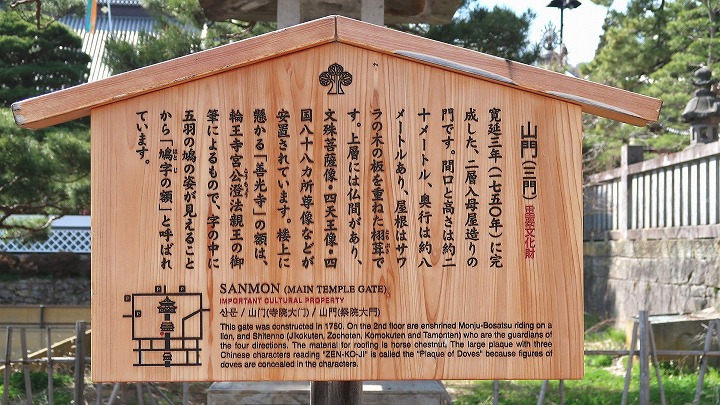 山門(三門) 重要文化財
寛延三年(一七五〇年)に完
成した、二層入母屋造りの
門です。間口と高さは約二
十メートル、奥行は約八
メートルあり、屋根はサワ
ラの木の板を重ねた栩葺で
す。上層には仏間があり、
文殊菩薩像・四天王像・四
国八十八カ所尊像などが
安置されています。楼上に
懸かる「善光寺」の額は、
輪王寺宮公澄法親王の御
筆によるもので、字の中に
五羽の鳩の姿が見えること
から「鳩字の額」と呼ばれ
ています。
SANMON (MAIN TEMPLE GATE)
IMPORTANT CULTURAL PROPERTY
산문 / 山门(寺院大门) / 山門(寺院大門)
This gate was constructed in 1750. On the 2nd floor are enshrined Monju-Bosatsu riding on a
lion, and Shitenno (Jikokuten, Zochoten, Komokuten and Tamonten) who are the guardians of
the four directions. The material for roofing is horse chestnut. The large plaque with three
Chinese characters reading "ZEN-KO-JI" is called the "Plaque of Doves" because figures of
doves are concealed in the characters.